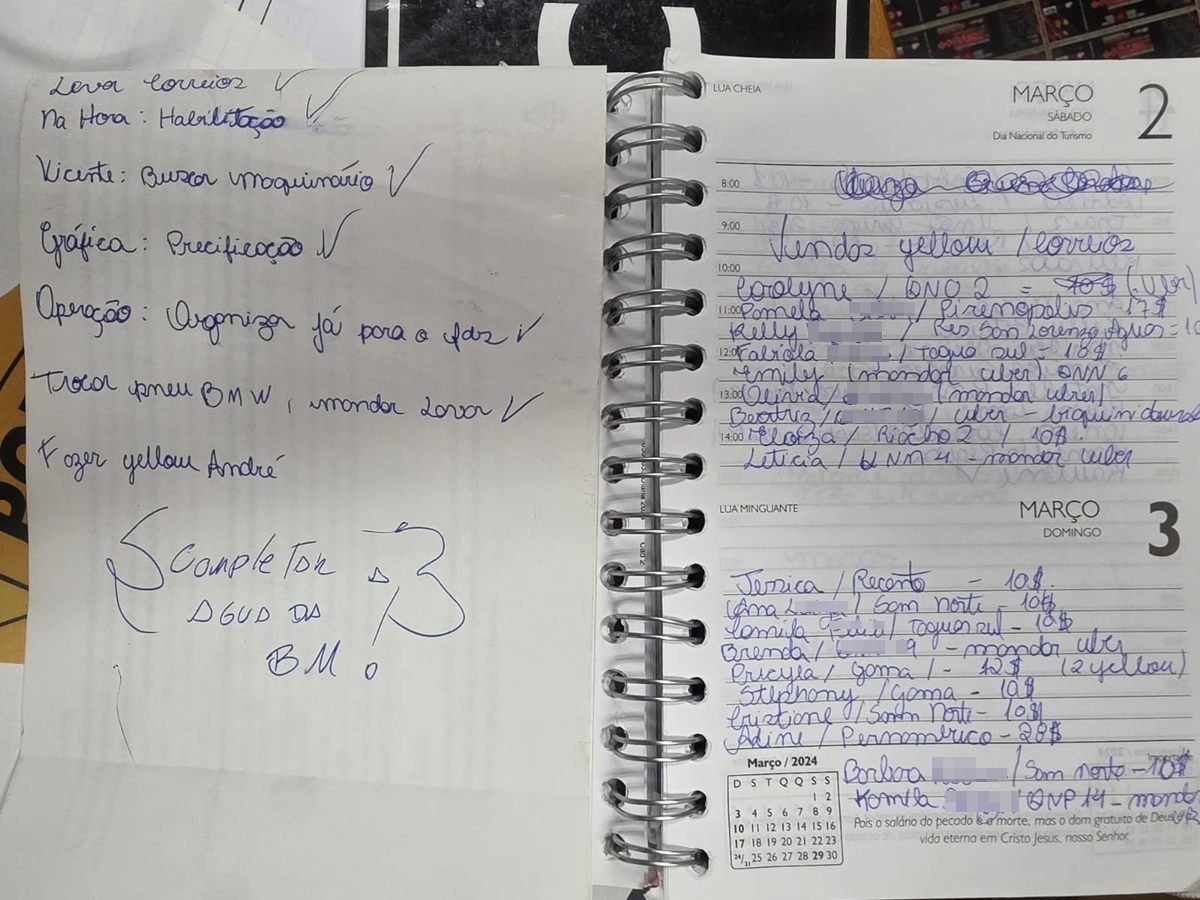 Levar Correios
Na Hora: Habilitação
Vicente: Buscar maquinário
Gráfica: Precificação
Operação: Organizar já para o fds
Trocar pneu BMW, mandar Lavar
Fazer yellow André
COMPLETAR A
AGUA DA
BM.
LUA CHEIA
MARÇO
2
SÁBADO
Dia Nacional do Turismo
8:00
9:00
Vendas yellow / Correios
10:00
Carolyne / QNO 2 = (Uber)
11:00 Pamela / Pirenopolis 17$
Kelly / Res San Lorenzo Aguas =
12:00 Fabiola / Tagua sul - 10$
Emily (mandar uber) QNN 6
13:00 Olivia / (mandar uber)
Beatriz / / uber - biquini dourado
14:00 Eloiza / Riacho 2 / 10$.
Leticia / QNM 4 - mandar uber
LUA MINGUANTE
MARÇO
3
DOMINGO
Jessica / Recanto - 10$.
Ana / Sam Norte - 10$
Camila / Tagua sul - 10$
Brenda / 9 - mandar uber
Pricyla / Gama / - 12$ (2 yellow)
Stephany / Gama - 10$
Cristiane / Sam Norte - 10$
Aline / Pernambuco - 28$
Importante
Barbara / Sam norte - 10$
Kamila / QNP 14 - mandar
Março / 2024
D S T Q Q S S
1 2
3 4 5 6 7 8 9
10 11 12 13 14 15 16
17 18 19 20 21 22 23
24/31 25 26 27 28 29 30
Pois o salário do pecado é a morte, mas o dom gratuito de Deus
vida eterna em Cristo Jesus, nosso Senhor.